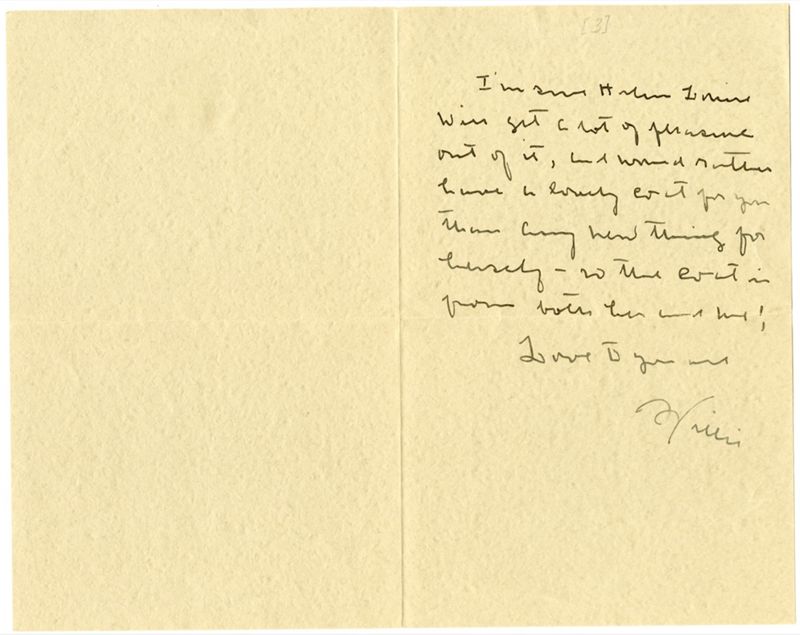 [3]
I'm sure Helen Louise
will get a lot of pleasure
out of it, and would rather
have a lovely coat for you
than any new thing for
herself – so the coat is
from both her and me!
Love to you all
Willie